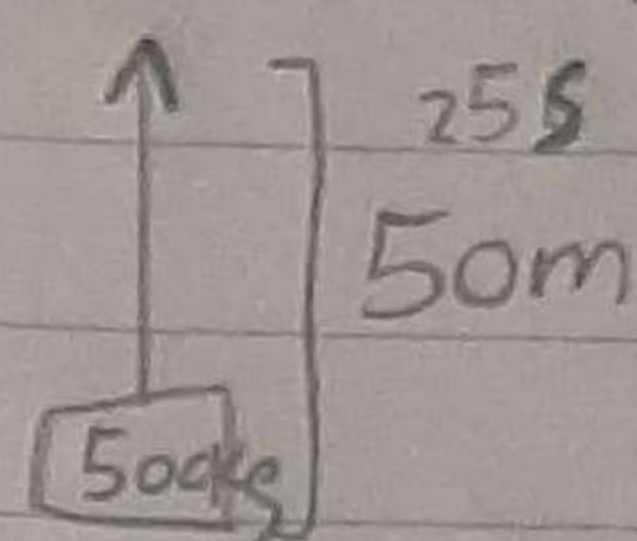 25s
50m
500kg